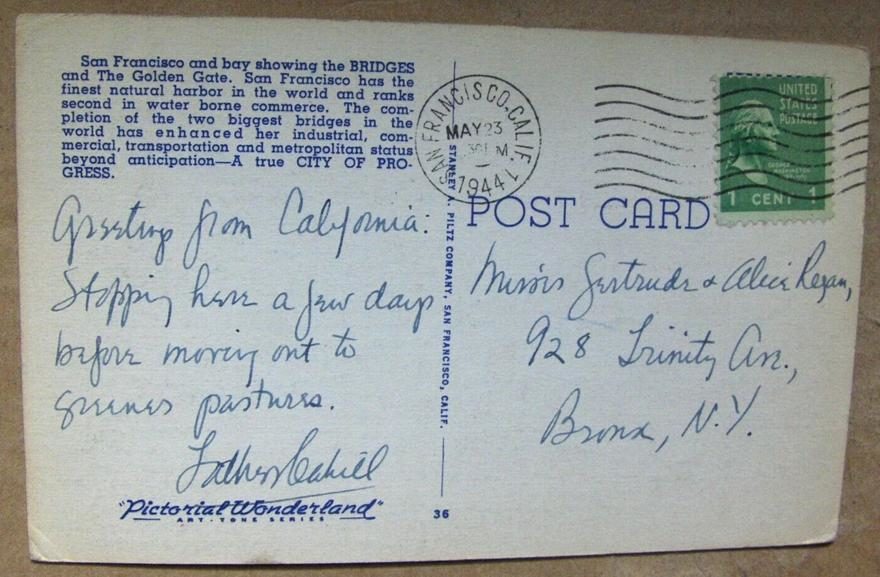 San Francisco and bay showing the BRIDGES
and The Golden Gate. San Francisco has the
finest natural harbor in the world and ranks
second in water borne commerce. The com-
pletion of the two biggest bridges in the
world has enhanced her industrial, com-
mercial, transportation and metropolitan status
beyond anticipation—A true CITY OF PRO-
GRESS.
Greetings from California:
Stopping here a few days
before moving out to
greener pastures.
Father Cahill
"Pictorial Wonderland"
ART-TONE SERIES
STANLEY A. PILTZ COMPANY, SAN FRANCISCO, CALIF.
36
SAN FRANCISCO, CALIF. 1
MAY 23
1944
UNITED
STATES
POSTAGE
GEORGE
WASHINGTON
1 CENT 1
POST CARD
Misses Gertrude & Alice Regan,
928 Trinity Ave.,
Bronx, N.Y.